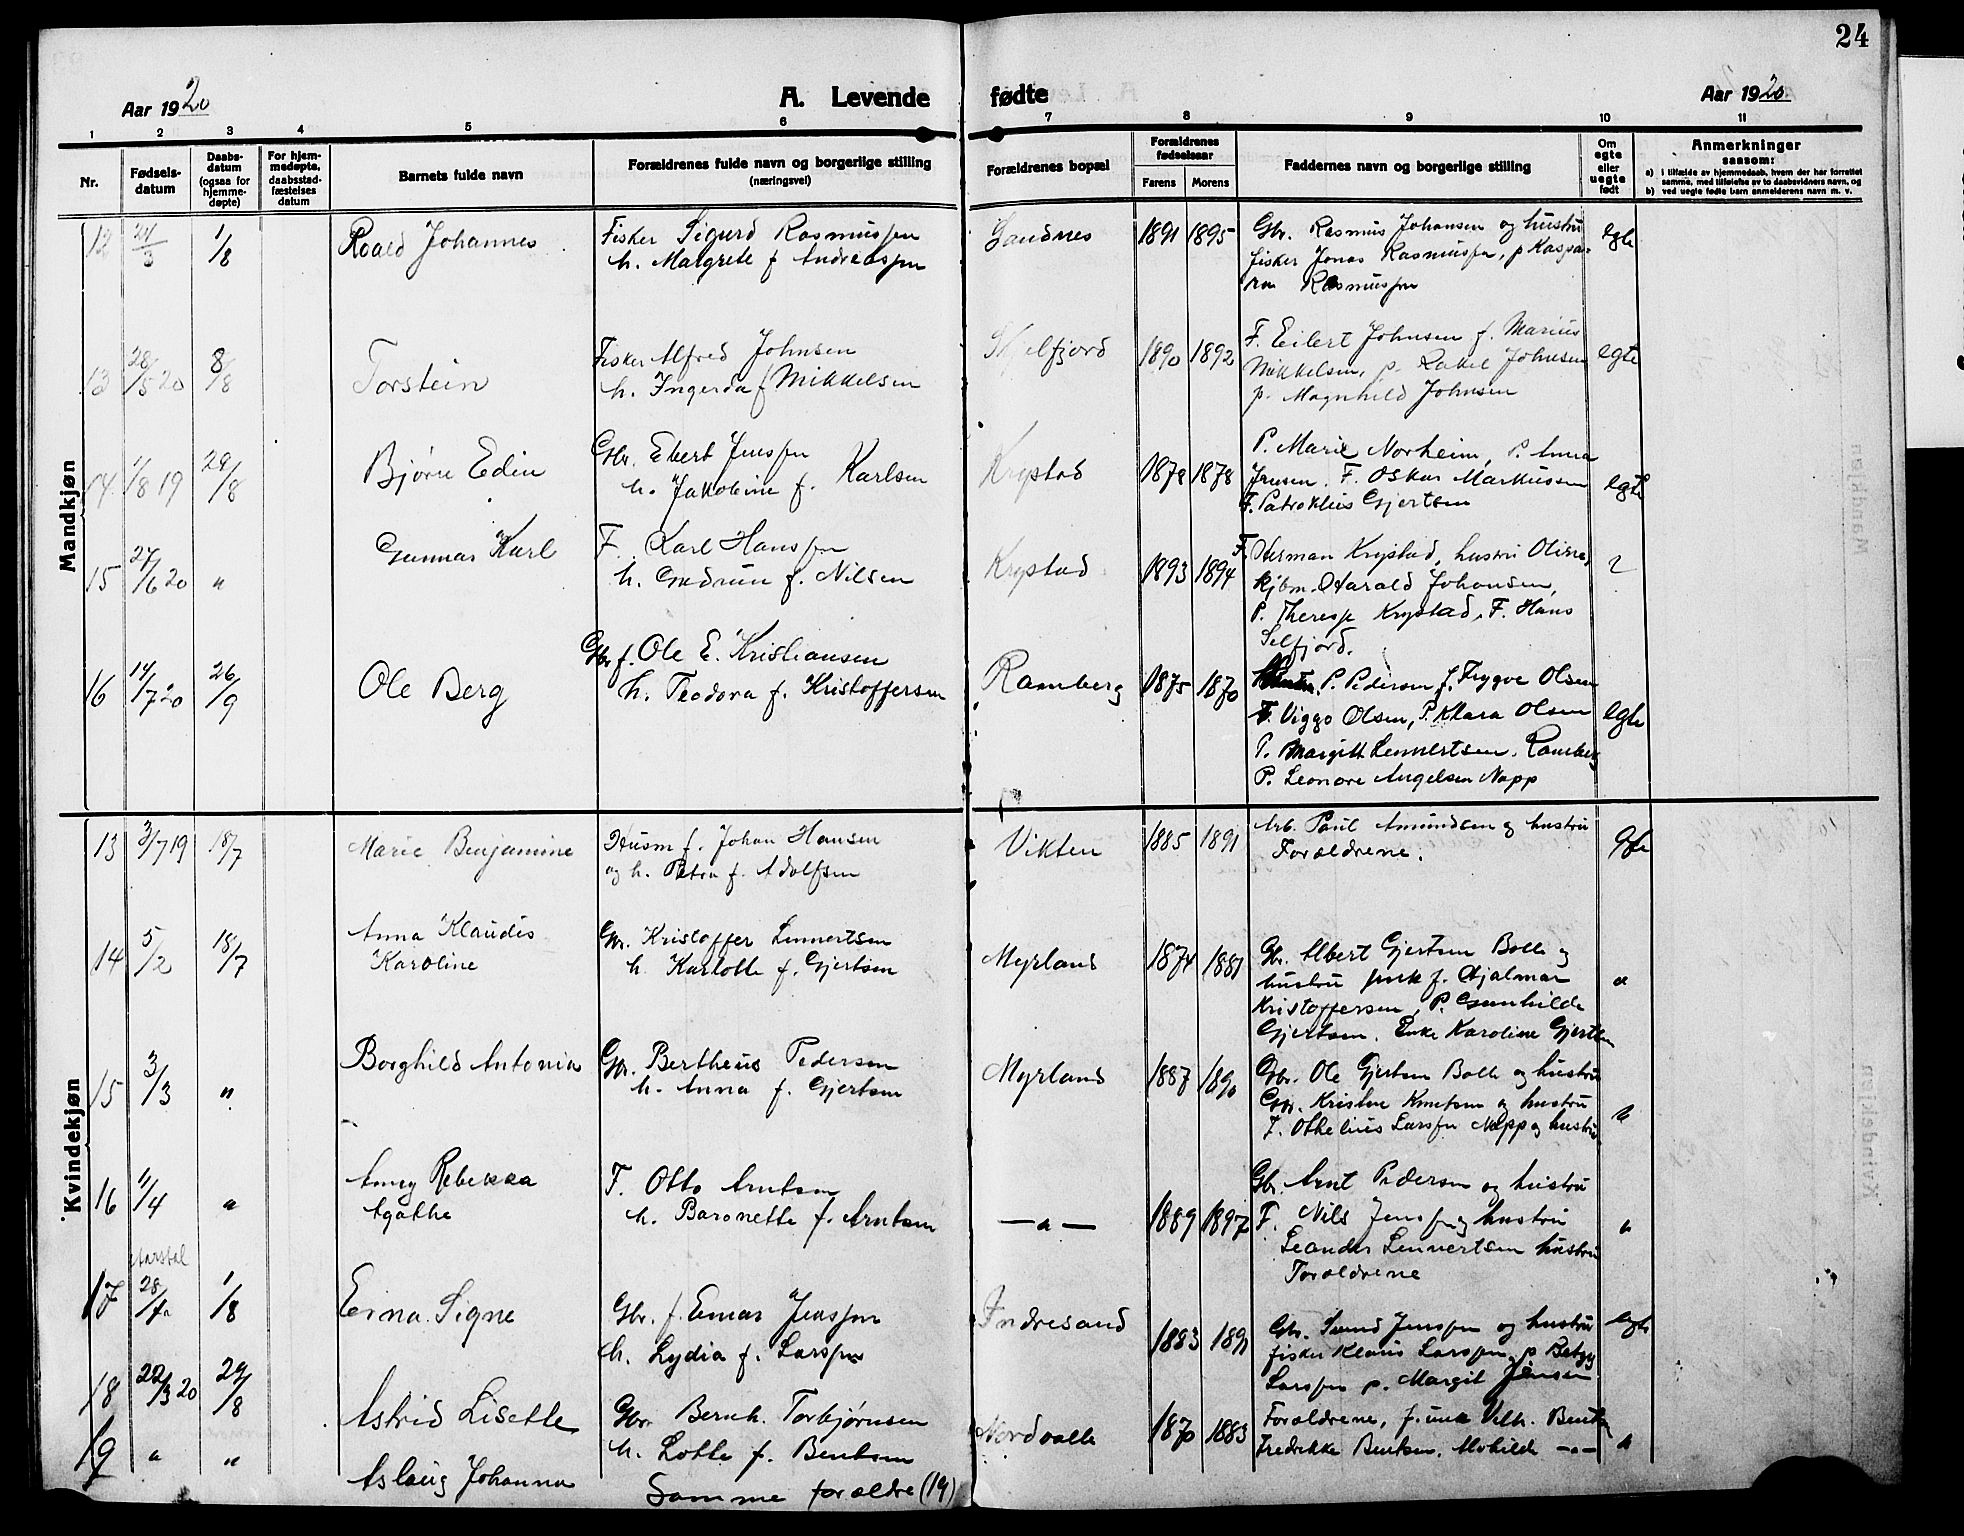 24
Aar 1920
A. Levende fødte
Aar 1920
1 2 3 4 5 6 7 8 9 10 11
Nr.
Fødsels-
datum
Daabs-
datum
(ogsaa for
hjemme-
døpte)
For hjem-
medøpte,
daabsstad-
fæstelses
datum
Barnets fulde navn
Forældrenes fulde navn og borgerlige stilling
(næringsvei)
Forældrenes bopæl
Forældrenes
fødselsaar
Farens Morens
Faddernes navn og borgerlige stilling
Om
egte
eller
uegte
født
Anmerkninger
saasom:
a) i tilfælde av hjemmedaab, hvem der har forrettet
samme, med tilføielse av to daabsvidners navn, og
b) ved uegte fødte barn anmelderens navn m. v.
Mandkjøn
12 24/3 1/8 Roald Johannes
Fisker Sigurd Rasmussen
h. Margrete f Andreassen
Sandnes 1891 1895
Gbr. Rasmus Johansen og hustru
fisker Jonas Rasmussen, p Kaspa-
ra Rasmussen
egte
13 28/5 20 8/8 Torstein
Fisker Alfred Johnsen
h. Ingerda f Mikkelsen
Skjelfjord 1890 1892
F. Eilert Johnsen f. Marius
Mikkelsen, p. Rakel Johnsen
p. Magnhild Johnsen
egte
14 1/8 19 29/8 Bjørn Edin
Gbr. Ebert Jenssen
h. Jakobine f. Karlsen
Krystad 1878 1878
P. Marie Norheim, P. Anna
Jensen. F. Oskar Markussen
F. Patroklus Gjertsen
egte
15 27/6 20 " Gunnar Karl
F. Karl Hanssen
h. Gudrun f. Nilsen
Krystad 1893 1894
F. Herman Krystad, hustru Oline,
kjbm. Harald Johansen,
P. Therese Krystad, F. Hans
Selfjord.
16 14/7 20 26/9 Ole Berg
Gbr f. Ole E. Kristiansen
h. Teodora f. Kristoffersen
Ramberg 1875 1870
P. Pedersen f. Trygve Olsen
F. Viggo Olsen, P. Klara Olsen
P. Margitt Lennertsen. Ramberg
P. Leonore Angelsen Napp
egte
Kvindekjøn
13 3/7 19 18/7 Marie Benjamine
Husm f. Johan Hansen
og h. Petra f. Adolfsen
Vikten 1885 1891
Arb. Paul Amundsen og hustru
Forældrene.
14 5/2 18/7 Anna Klaudis
Karoline
Gbr. Kristoffer Lennertsen
h. Karlotte f. Gjertsen
Myrland 1874 1881
Gbr. Albert Gjertsen Bolle og
hustru f. Hjalmar
Kristoffersen, P. Gunhilde
Gjertsen. Enke Karoline Gjertsen
"
15 3/3 " Borghild Antonia
Gbr. Bertheus Pedersen
h. Anna f. Gjertsen
Myrland 1887 1890
Gbr. Ole Gjertsen Bolle og hustru
Gbr. Kristen Knutsen og hustru
F. Othelius Larssen Napp og hustru
"
16 11/4 " Anny Rebekka
Agathe
F. Otto Arntsen
h. Baronette f. Arntsen
— " — 1889 1897
Gbr. Arnt Pedersen og hustru
F. Nils Jenssen og hustru
Leander Lennertsen hustru
Forældrene
"
Aarstal
17 28/ 1/8 Erna Signe
Gbr. f. Einar Jenssen
h. Lydia f. Larssen
Indresand 1883 1891
Gbr. Svend Jenssen og hustru
fisker Klaus Larssen, p Betzy
Larssen p. Margit Jensen
egte
18 22/3 20 29/8 Astrid Lisette
Gbr. Bernh. Torbjørnsen
h. Lotte f. Bentsen
Nordvolle 1870 1883
Forældrene, f. Vilh. Bentsen
Fredrikke Bentsen. Mohilde — " —
"
19 " " Aslaug Johanna
Samme forældre (19)